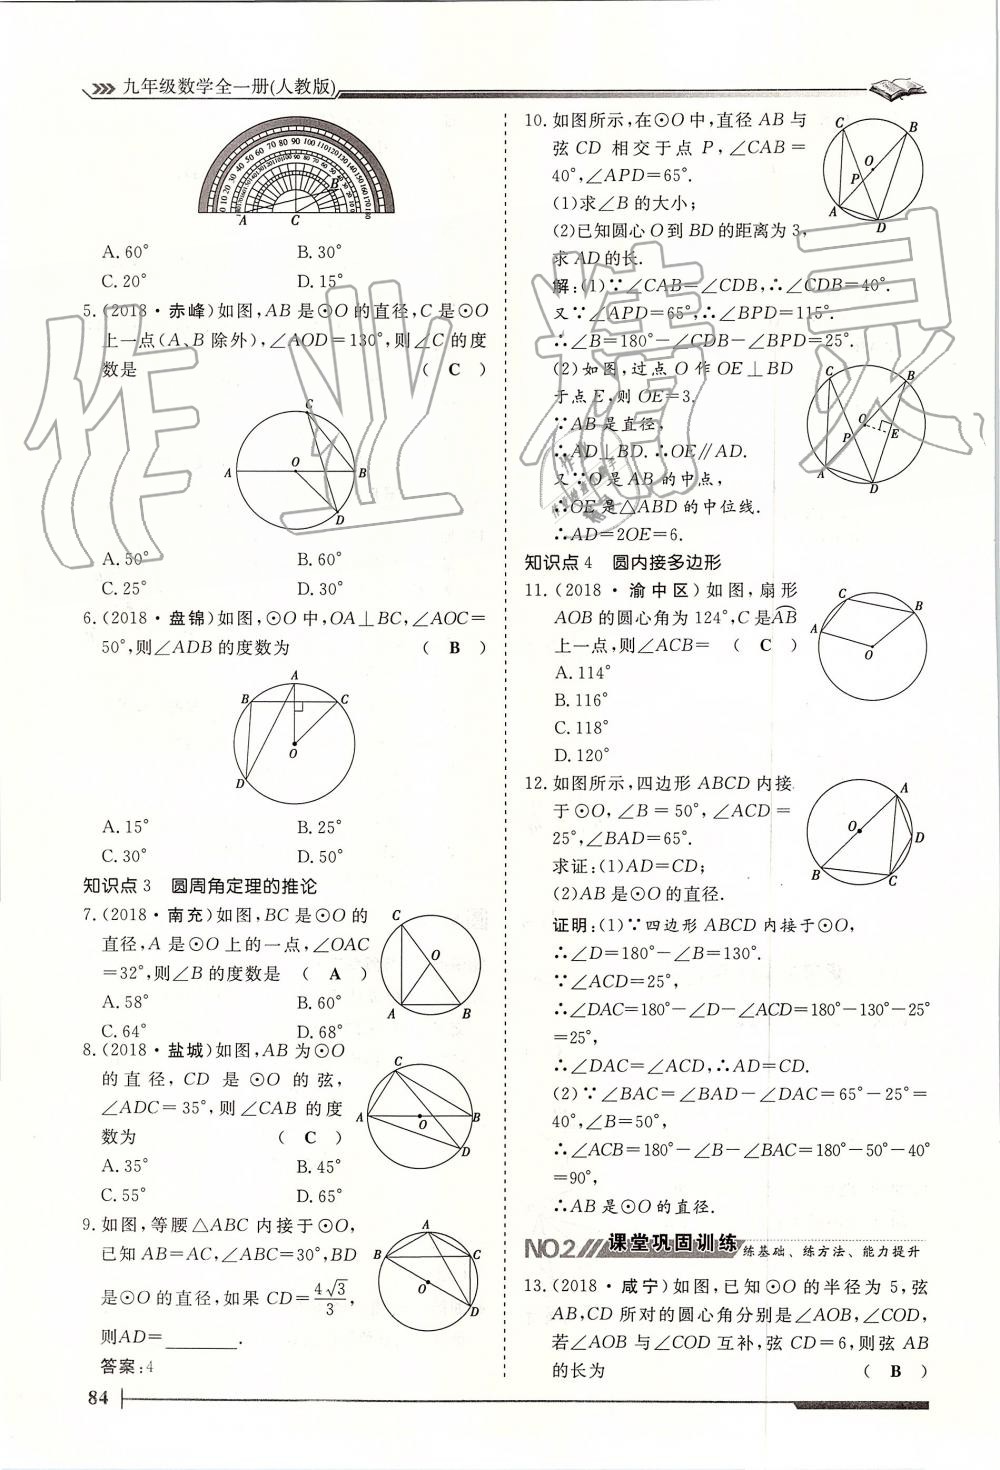 九年级数学全一册(人教版)
A.60° B.30°
C.20° D.15°
5.(2018·赤峰)如图,AB是⊙O的直径,C是⊙O
上一点(A、B除外),∠AOD=130°,则∠C的度
数是 ( C )
A O B C D
A.50° B.60°
C.25° D.30°
6.(2018·盘锦)如图,⊙O中,OA⊥BC,∠AOC=
50°,则∠ADB的度数为 ( B )
A B C O D
A.15° B.25°
C.30° D.50°
知识点3 圆周角定理的推论
7.(2018·南充)如图,BC是⊙O的
直径,A是⊙O上的一点,∠OAC
=32°,则∠B的度数是 ( A )
A.58° B.60°
C.64° D.68°
C O A B
8.(2018·盐城)如图,AB为⊙O
的直径,CD是⊙O的弦,
∠ADC=35°,则∠CAB的度
数为 ( C )
A.35° B.45°
C.55° D.65°
C A O B D
9.如图,等腰△ABC内接于⊙O,
已知AB=AC,∠ABC=30°,BD
是⊙O的直径,如果CD=4√3/3,
则AD=________.
答案:4
A B C O D
84
10.如图所示,在⊙O中,直径AB与
弦CD相交于点P,∠CAB=
40°,∠APD=65°.
(1)求∠B的大小;
(2)已知圆心O到BD的距离为3,
求AD的长.
C B O P A D
解:(1)∵∠CAB=∠CDB,∴∠CDB=40°.
又∵∠APD=65°,∴∠BPD=115°.
∴∠B=180°-∠CDB-∠BPD=25°.
(2)如图,过点O作OE⊥BD
于点E,则OE=3.
∵AB是直径,
∴AD⊥BD.∴OE∥AD.
又∵O是AB的中点,
∴OE是△ABD的中位线.
∴AD=2OE=6.
C B O P E A D
知识点4 圆内接多边形
11.(2018·渝中区)如图,扇形
AOB的圆心角为124°,C是AB
上一点,则∠ACB= ( C )
A.114°
B.116°
C.118°
D.120°
C B A O
12.如图所示,四边形ABCD内接
于⊙O,∠B=50°,∠ACD=
25°,∠BAD=65°.
求证:(1)AD=CD;
(2)AB是⊙O的直径.
A O D B C
证明:(1)∵四边形ABCD内接于⊙O,
∴∠D=180°-∠B=130°.
∵∠ACD=25°,
∴∠DAC=180°-∠D-∠ACD=180°-130°-25°
=25°,
∴∠DAC=∠ACD,∴AD=CD.
(2)∵∠BAC=∠BAD-∠DAC=65°-25°=
40°,∠B=50°,
∴∠ACB=180°-∠B-∠BAC=180°-50°-40°
=90°,
∴AB是⊙O的直径.
NO.2 课堂巩固训练 练基础、练方法、能力提升
13.(2018·咸宁)如图,已知⊙O的半径为5,弦
AB,CD所对的圆心角分别是∠AOB,∠COD,
若∠AOB与∠COD互补,弦CD=6,则弦AB
的长为 ( B )
作业精灵